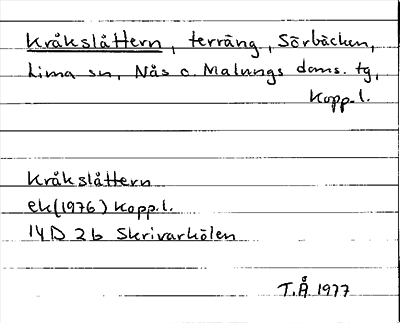 Kråkslåttern, terräng, Sörbäcken,
Lima sn, Nås o. Malungs doms. tg,
Kopp. l.
Kråkslåttern
ek(1976) Kopp. l.
14D 2b Skrivarkölen
T.Å 1977